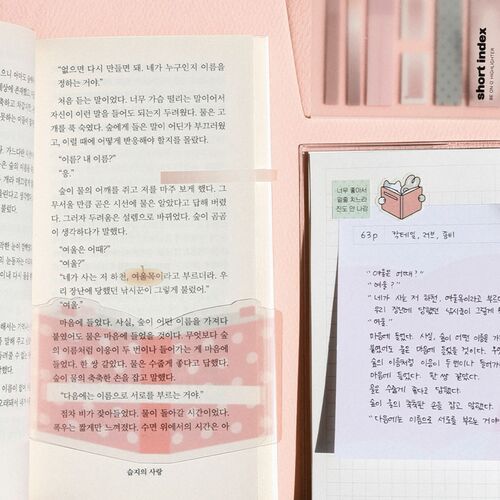 "없으면 다시 만들면 돼. 네가 누구인지 이름을
정하는 거야."
처음 듣는 말이었다. 너무 가슴 떨리는 말이어서
자신이 이런 말을 들어도 되는지 두려웠다. 물은 고
개를 푹 숙였다. 숲에게 들은 말이 어딘가 부끄러웠
고, 이럴 때에 어떻게 반응해야 할지를 몰랐다.
"이름? 내 이름?"
"응."
숲이 물의 어깨를 쥐고 저를 마주 보게 했다. 그
무서울 만큼 곧은 시선에 물은 알았다고 답해 버렸
다. 그러자 두려움은 설렘으로 바뀌었다. 숲이 곰곰
이 생각하다가 말했다.
"여울은 어때?"
"여울?"
"네가 사는 저 하천, 여울목이라고 부르더라. 우
리 장난에 당했던 낚시꾼이 그렇게 불렀어."
"여울."
마음에 들었다. 사실, 숲이 어떤 이름을 가져다
붙였어도 물은 마음에 들었을 것이다. 무엇보다 숲
의 이름처럼 이응이 두 번이나 들어가는 게 마음에
들었다. 한 쌍 같았다. 물은 수줍게 좋다고 답했다.
숲이 물의 축축한 손을 잡고 말했다.
"다음에는 이름으로 서로를 부르는 거야."
점차 비가 잦아들었다. 물이 돌아갈 시간이었다.
폭우는 짧게만 느껴졌다. 수면 위에서의 시간은 아
습지의 사랑
short index
BE ON D HIGHLIGHTER
너무 좋아서
밑줄 치느라
진도 안 나감
63p 칵테일, 러브, 좀비
"여울은 어때?"
"여울?"
"네가 사는 저 하천, 여울목이라고 부르
우리 장난에 당했던 낚시꾼이 그렇게
"여울."
마음에 들었다. 사실, 숲이 어떤 이름을 가
붙였어도 물은 마음에 들었을 것이다.
숲의 이름처럼 이응이 두 번이나 들어가
마음에 들었다. 한 쌍 같았다.
물은 수줍게 좋다고 답했다.
숲이 물의 축축한 손을 잡고 말했다.
"다음에는 이름으로 서로를 부르는 거야